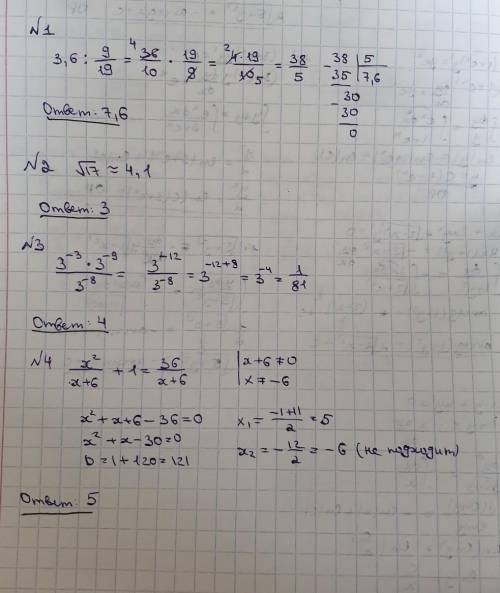 №1
3,6 : 9/19 = 36/10 · 19/9 = 4·19/10 = 38/5
4
2
5
38 | 5
35 | 7,6
30
30
0
Ответ: 7,6
№2 √17 ≈ 4,1
Ответ: 3
№3
3^-3 · 3^-9 / 3^-8 = 3^-12 / 3^-8 = 3^-12+8 = 3^-4 = 1/81
Ответ: 4
№4 x²/x+6 + 1 = 36/x+6
x+6≠0
x≠-6
x²+x+6-36=0
x²+x-30=0
D=1+120=121
x₁ = -1+11/2 = 5
x₂ = -12/2 = -6 (не подходит)
Ответ: 5